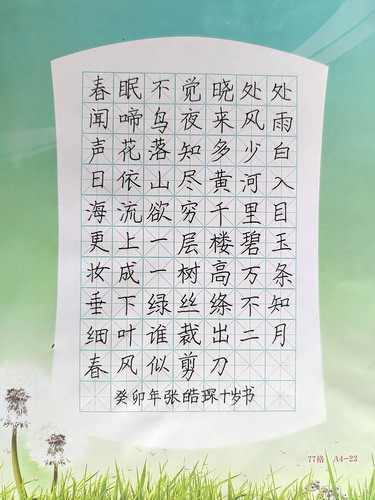 春眠不觉晓处处
闻啼鸟夜来风雨
声花落知多少白
日依山尽黄河入
海流欲穷千里目
更上一层楼碧玉
妆成一树高万条
垂下绿丝绦不知
细叶谁裁出二月
春风似剪刀
癸卯年张皓琛十岁书
77格 A4-23